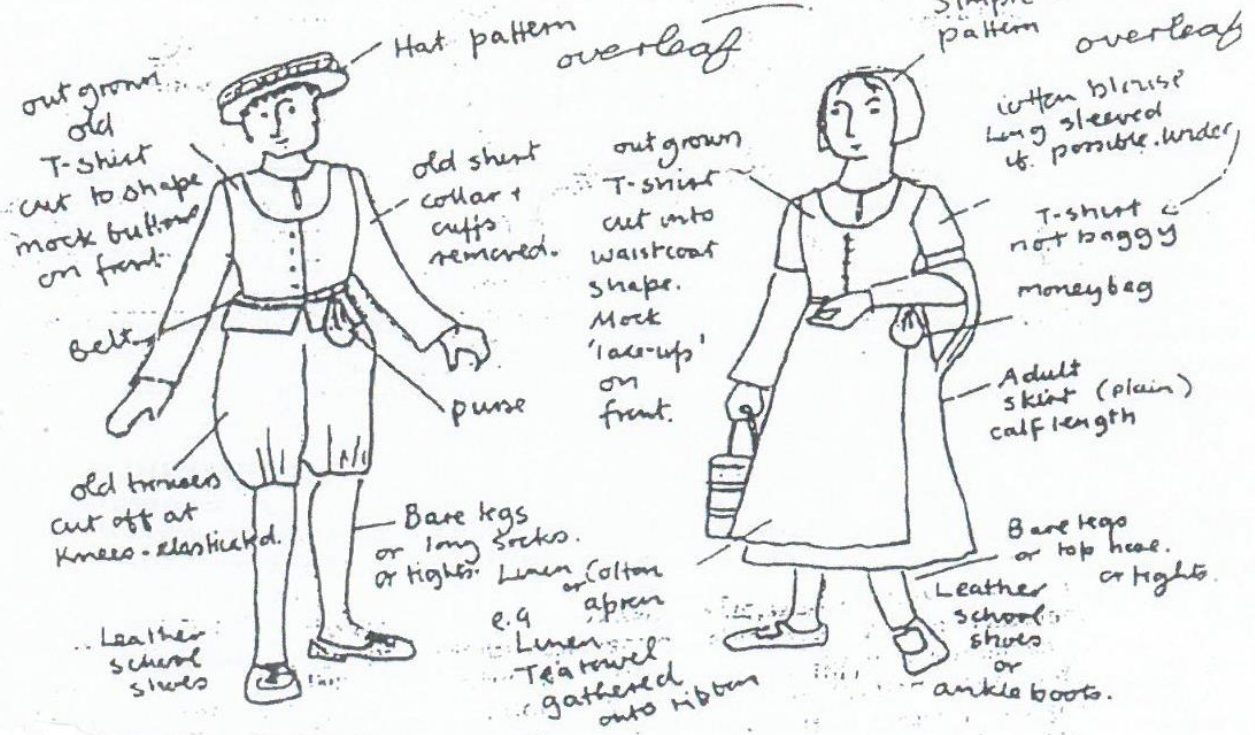 Hat pattern
overleaf
out grown
old
T-shirt
cut to shape
mock buttons
on front.
old shirt
collar +
cuffs
removed.
Belt
purse
old trousers
cut off at
knees - elasticated.
Bare legs
or long socks.
or tights.
Leather
school
shoes
Simple
pattern
overleaf
out grown
T-shirt
cut into
waistcoat
shape.
Mock
'lace-ups'
on
front.
cotton blouse
Long sleeved
if possible. Under
T-shirt
not baggy
moneybag
Adult
skirt (plain)
calf length
Bare legs
or top hose.
or tights.
Linen or Cotton
apron
e.g
Linen
Teatowel
gathered
onto ribbon
Leather
school
shoes
or
ankle boots.